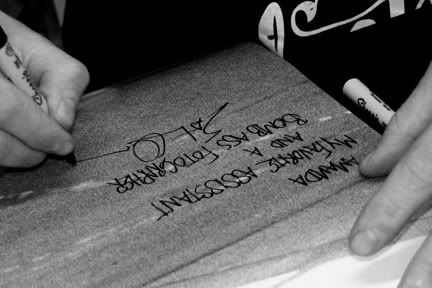 AMANDA
MY FAVORITE ASSISTANT
AND A
BOMB ASS FOTOGRAPHER